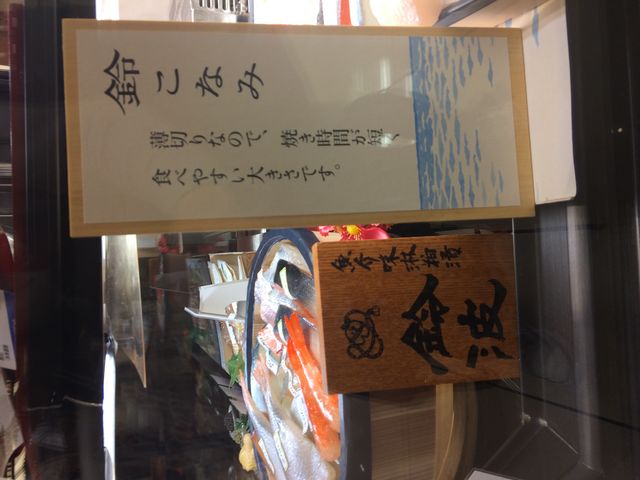 鈴こなみ
薄切りなので、焼き時間が短く
食べやすい大きさです。
魚介味淋粕漬
鈴波